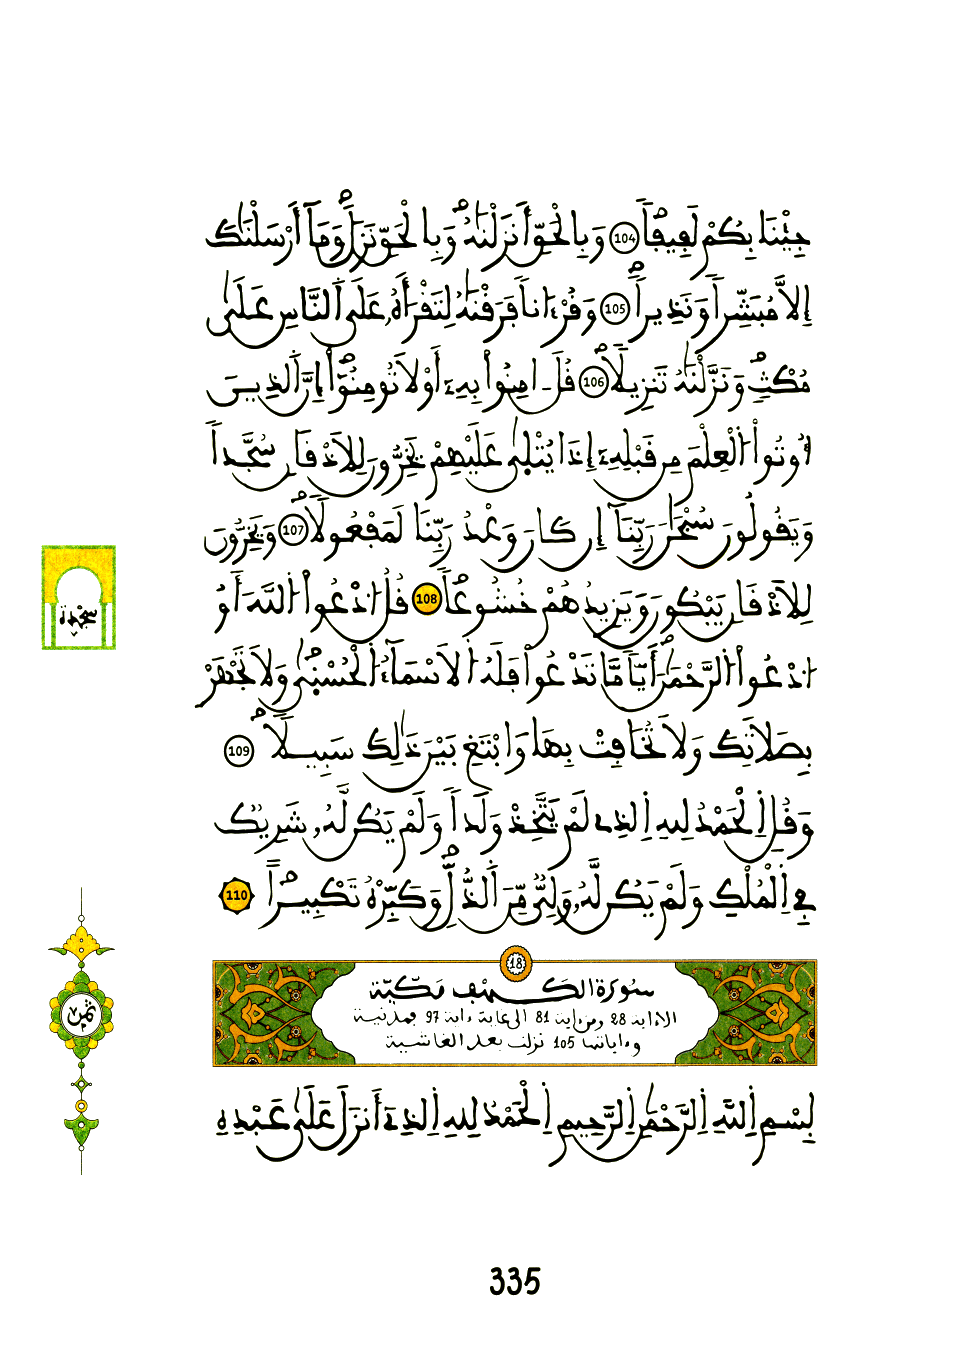 جِئْنَا بِكُمْ لَفِيفاًۖ 104 وَبِالْحَقِّ أَنزَلْنَٰهُ وَبِالْحَقِّ نَزَلَۖ وَمَآ أَرْسَلْنَٰكَ
إِلَّا مُبَشِّراً وَنَذِيراًۖ 105 وَقُرْءَاناً فَرَقْنَٰهُ لِتَقْرَأَهُۥ عَلَى اَ۬لنَّاسِ عَلَىٰ
مُكْثٍۖ وَنَزَّلْنَٰهُ تَنزِيلاًۖ 106 قُلَ اٰمِنُواْ بِهِۦٓ أَوْ لَا تُومِنُوٓاْۖ إِنَّ اَ۬لذِينَ
أُوتُواْ اُ۬لْعِلْمَ مِن قَبْلِهِۦٓ إِذَا يُتْلَىٰ عَلَيْهِمْ يَخِرُّونَ لِلَاذْقَانِ سُجَّداً
وَيَقُولُونَ سُبْحَٰنَ رَبِّنَآ إِن كَانَ وَعْدُ رَبِّنَا لَمَفْعُولاًۖ 107 وَيَخِرُّونَ
لِلَاذْقَانِ يَبْكُونَ وَيَزِيدُهُمْ خُشُوعاًۖ 108 قُلُ اُ۟دْعُواْ اُ۬للَّهَ أَوُ
اُ۟دْعُواْ اُ۬لرَّحْمَٰنَۖ أَيّاً مَّا تَدْعُواْ فَلَهُ اُ۬لَاسْمَآءُ اُ۬لْحُسْنَىٰۖ وَلَا تَجْهَرْ
بِصَلَاتِكَ وَلَا تُخَافِتْ بِهَا وَابْتَغِ بَيْنَ ذَٰلِكَ سَبِيلاًۖ 109
وَقُلِ اِ۬لْحَمْدُ لِلهِ اِ۬لذِے لَمْ يَتَّخِذْ وَلَداً وَلَمْ يَكُن لَّهُۥ شَرِيكٌ
فِے اِ۬لْمُلْكِ وَلَمْ يَكُن لَّهُۥ وَلِيٌّ مِّنَ اَ۬لذُّلِّۖ وَكَبِّرْهُ تَكْبِيراًۖ 110
سجدة
18
سورة الكهف مكية
الا ءاية 28 ومن ءاية 83 الى غاية ءاية 97 فمدنية
وءاياتها 105 نزلت بعد الغاشية
ثمن
بِسْمِ اِ۬للَّهِ اِ۬لرَّحْمَٰنِ اِ۬لرَّحِيمِ اِ۬لْحَمْدُ لِلهِ اِ۬لذِےٓ أَنزَلَ عَلَىٰ عَبْدِهِ
335